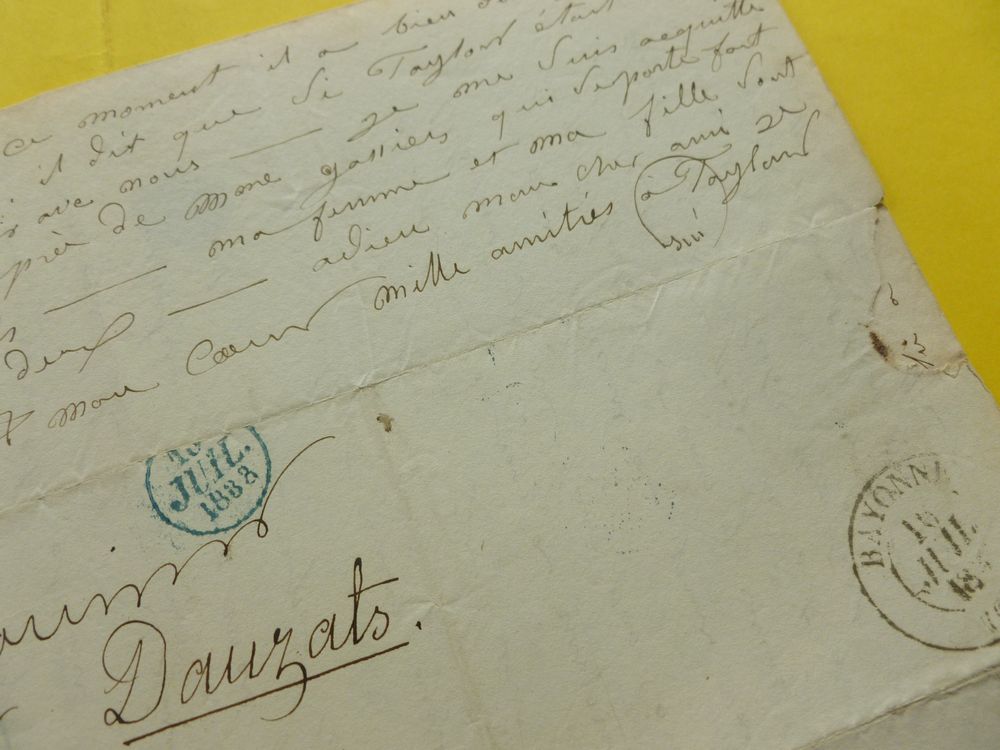 ce moment il a bien
il dit que si Taylor était
avec nous — je me suis acquitté
de Mme gassiers qui se porte fort
— ma femme et ma fille sont
deux — adieu mon cher ami je
mon Coeur mille amitiés à Taylor
JUIL.
1838
BAYONNE
18
JUIL
Dauzats.